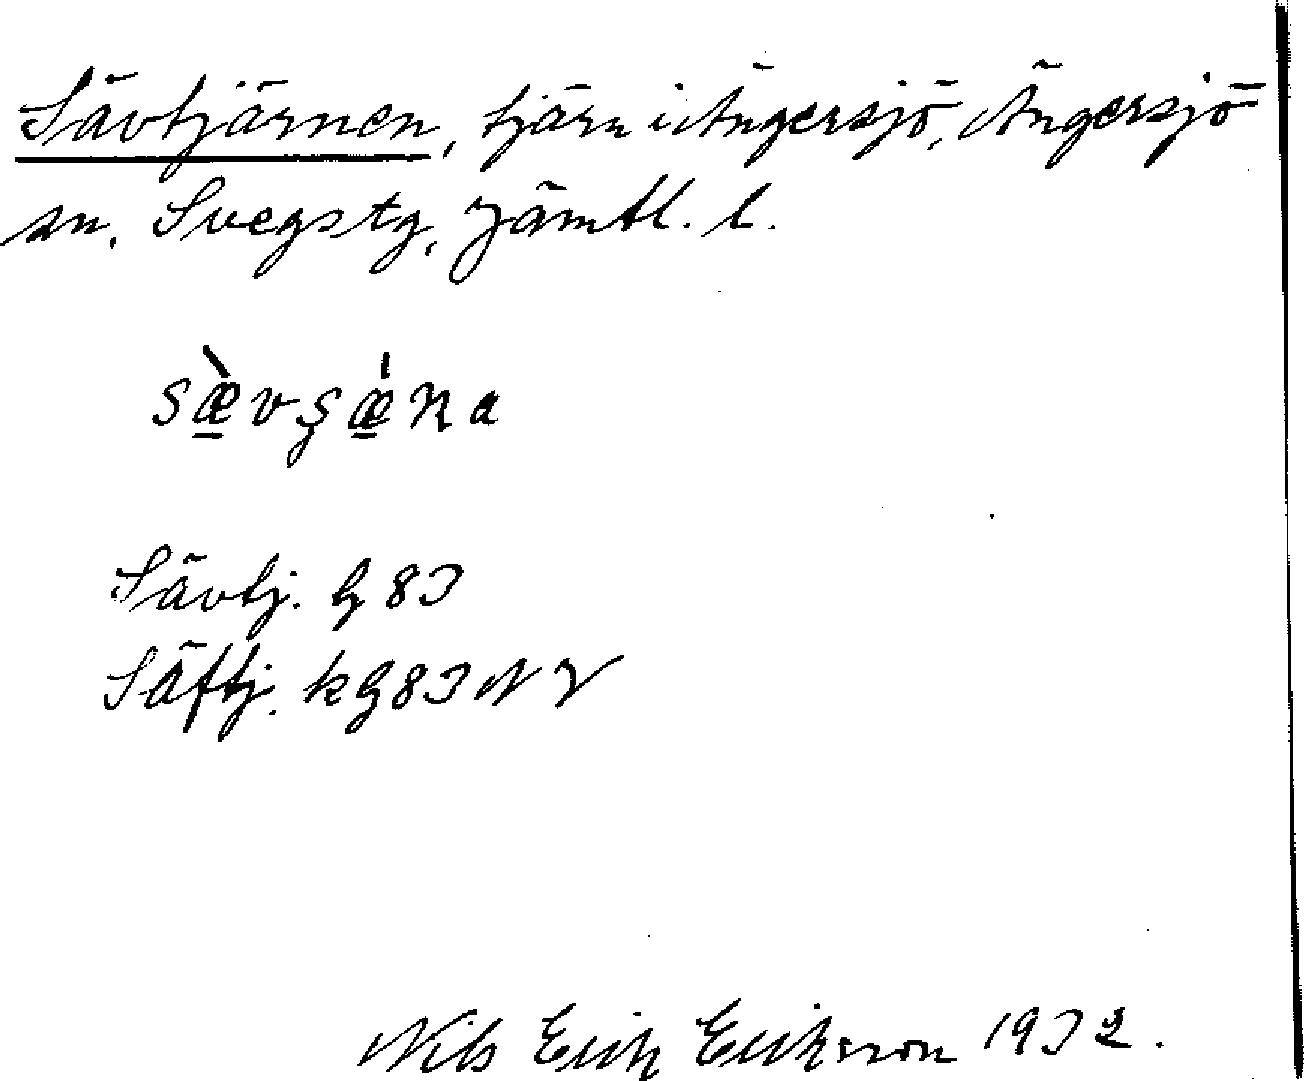 Sävtjärnen, tjärn i Ängersjö, Ängersjö
sn. Svegs tg, Jämtl. l.
sæ̠̀vʂǽ̠ɳa
Sävtj. G 83
Säftj. kG83 NV
Nils Erik Erikszon 1932.